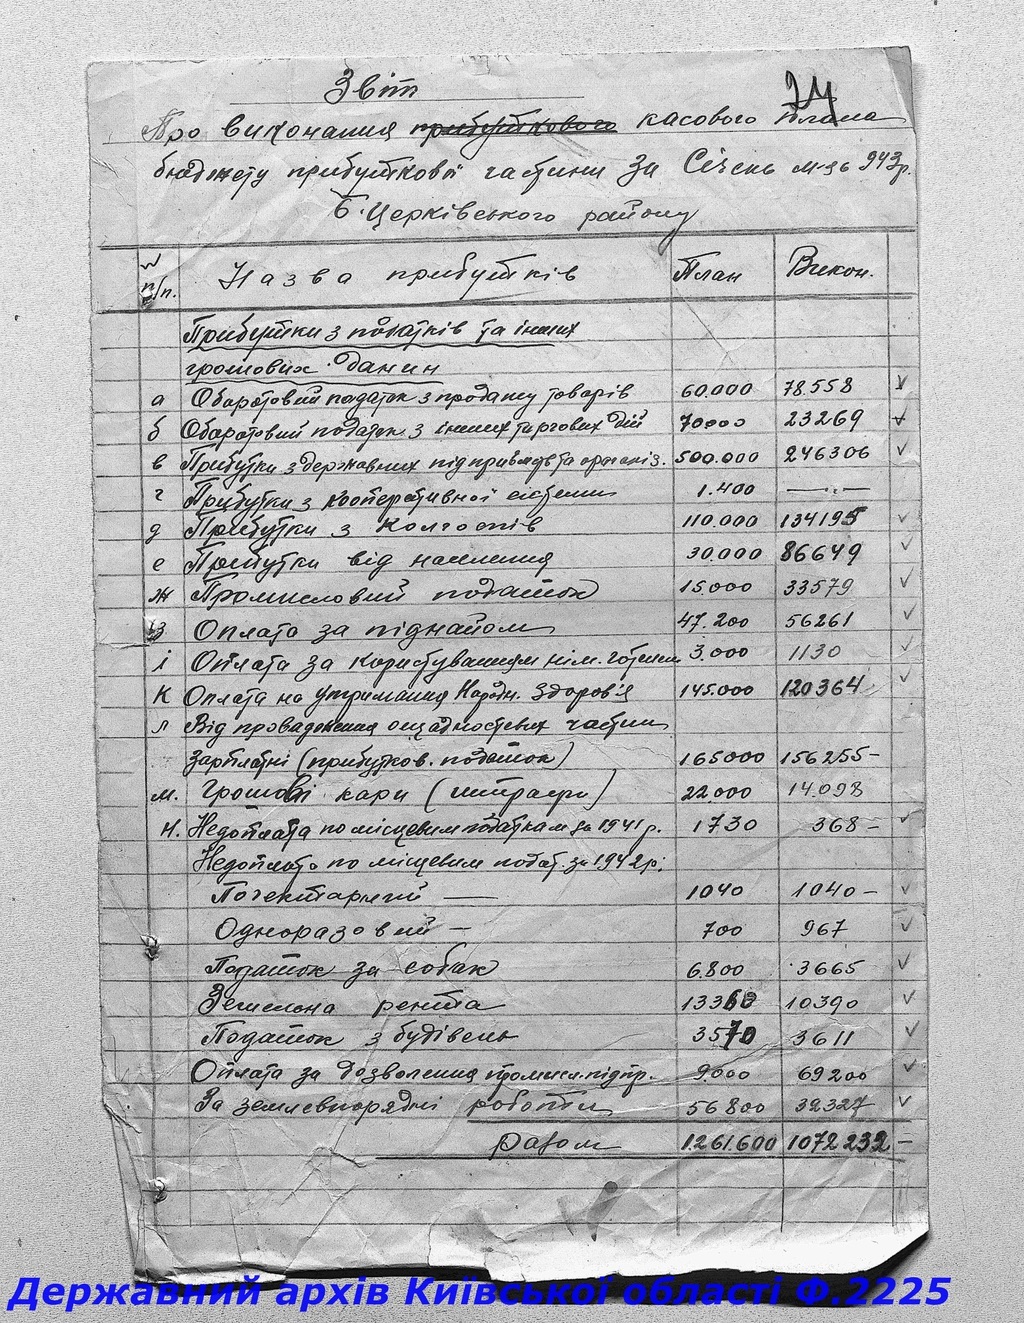 Звіт
24
Про виконання прибуткового касового плана
бюджету прибуткової частини за Січень м-ць 943р.
Б. Церківського району
N п/п. Назва прибутків План Викон.
Прибутки з податків та інших
грошових данин
а Обаротовий податок з продажу товарів 60.000 78.558 v
б Обаротовий податок з інших торгових дій 70000 23269
в Прибутки з державних підприємств та організ. 500.000 246306 v
г Прибутки з кооперативної системи 1.400 —"—
д Прибутки з колгоспів 110.000 134195 v
е Прибутки від населення 30.000 86649 v
ж Промисловий податок 15.000 33579 v
з Оплата за піднайом 47.200 56261 v
і Оплата за користуванням нім. 3.000 1130 v
к Оплата на утримання Народн. Здоров'я 145.000 120364 v
л Від провадження ощадностевих частин
зарплатні (прибутков. податок) 165000 156255-
м. Грошові кари (штрафи) 22.000 14.098
н. Недоплата по місцевим податкам за 1941 р. 1730 368- v
Недоплата по місцевим подат. за 1942 р:
Погектарний — 1040 1040- v
Одноразовий - 700 967 v
Податок за собак 6.800 3665 v
Земельна рента 13360 10390 v
Податок з будівель 3570 3611 v
Оплата за дозволення промисл. підпр. 9.000 69200 v
За землевпорядні роботи 56800 39327 v
Разом 1.261.600 1072232 -
Державний архів Київської області Ф.2225